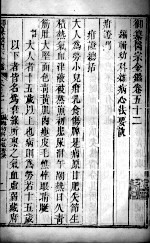 御纂醫宗金鑑卷五十二
編輯幼科雜病心法要訣
疳證門
疳證總括
大人為勞小兒疳乳食傷脾是病原甘肥失節生
積熱氣血津液被熬煎初患尿泔午潮熱日久青
筋肚大堅面色青黃肌肉瘦皮毛憔悴眼睛䀮
十五歲以上
病則為勞若十五歲
以下者皆名為疳
氣血虛弱